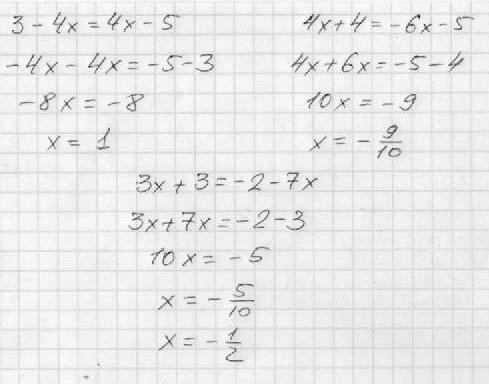 3 - 4x = 4x - 5
-4x - 4x = -5 - 3
-8x = -8
x = 1
4x + 4 = -6x - 5
4x + 6x = -5 - 4
10x = -9
x = -9/10
3x + 3 = -2 - 7x
3x + 7x = -2 - 3
10x = -5
x = -5/10
x = -1/2